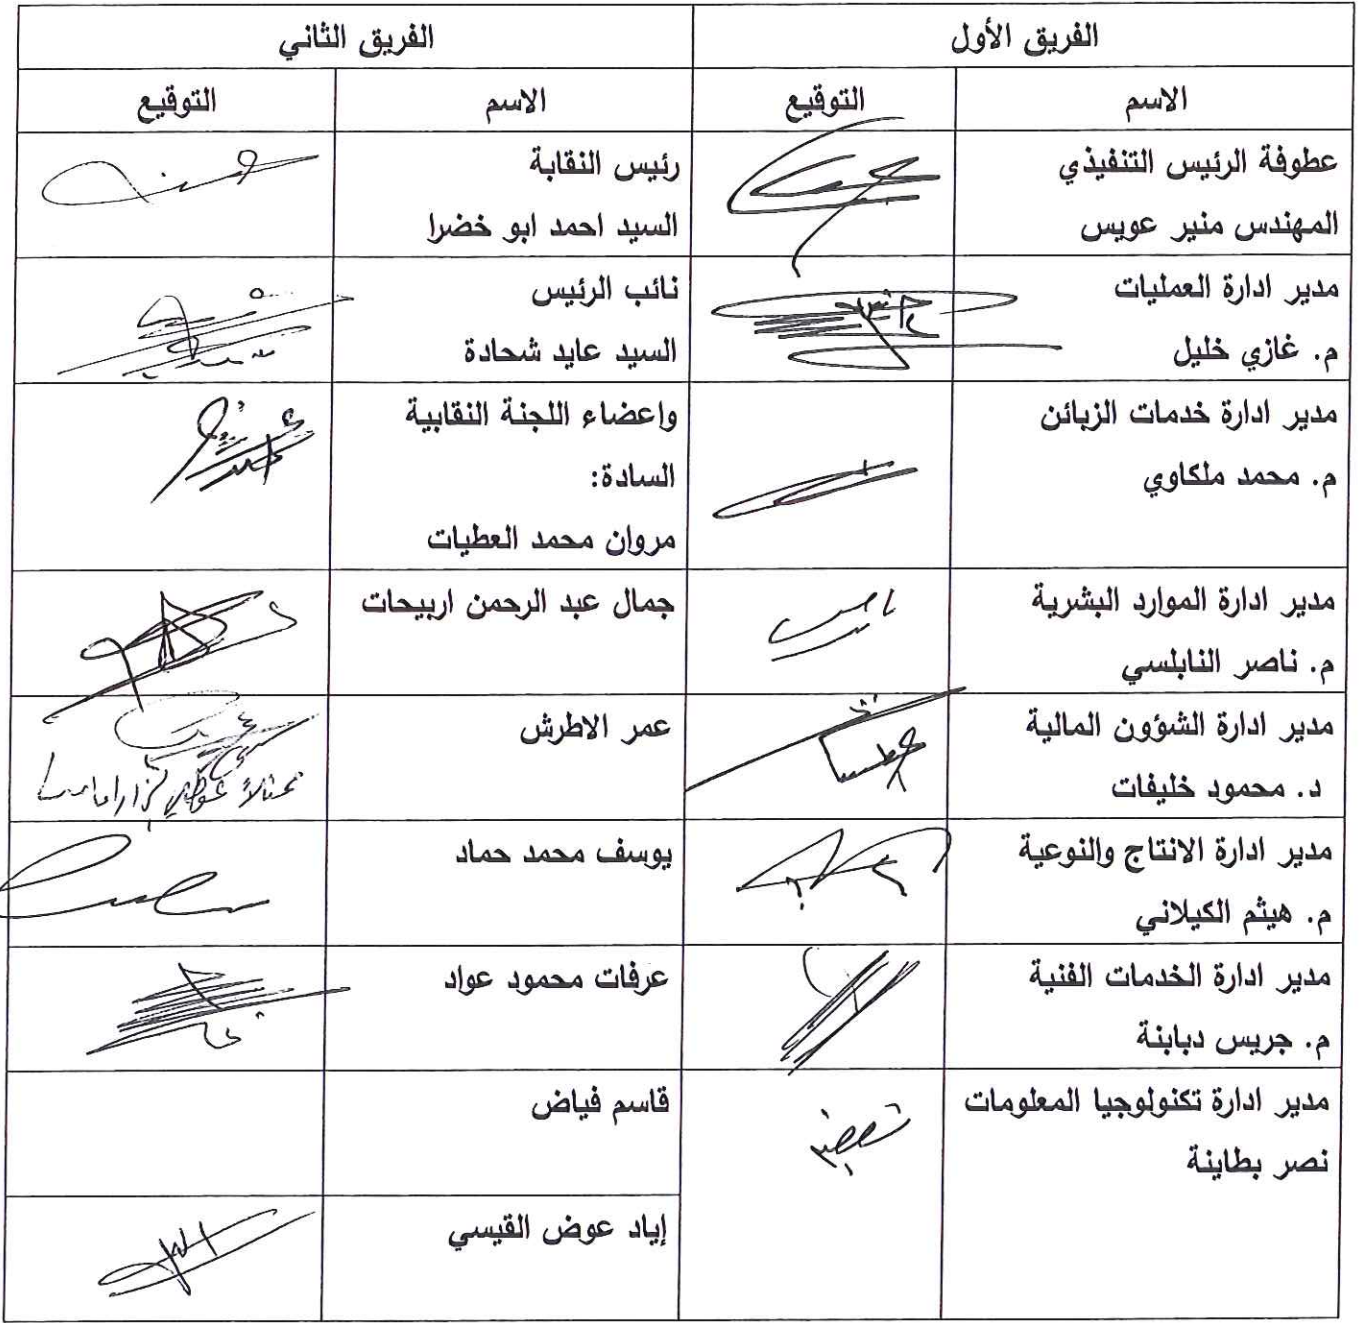 الفريق الأول
الفريق الثاني
الاسم
التوقيع
الاسم
التوقيع
عطوفة الرئيس التنفيذي
المهندس منير عويس
رئيس النقابة
السيد احمد ابو خضرا
مدير ادارة العمليات
م. غازي خليل
نائب الرئيس
السيد عايد شحادة
مدير ادارة خدمات الزبائن
م. محمد ملكاوي
واعضاء اللجنة النقابية
السادة:
مروان محمد العطيات
مدير ادارة الموارد البشرية
م. ناصر النابلسي
جمال عبد الرحمن اربيحات
مدير ادارة الشؤون المالية
د. محمود خليفات
عمر الاطرش
مدير ادارة الانتاج والنوعية
م. هيثم الكيلاني
يوسف محمد حماد
مدير ادارة الخدمات الفنية
م. جريس دبابنة
عرفات محمود عواد
مدير ادارة تكنولوجيا المعلومات
نصر بطاينة
قاسم فياض
إياد عوض القيسي